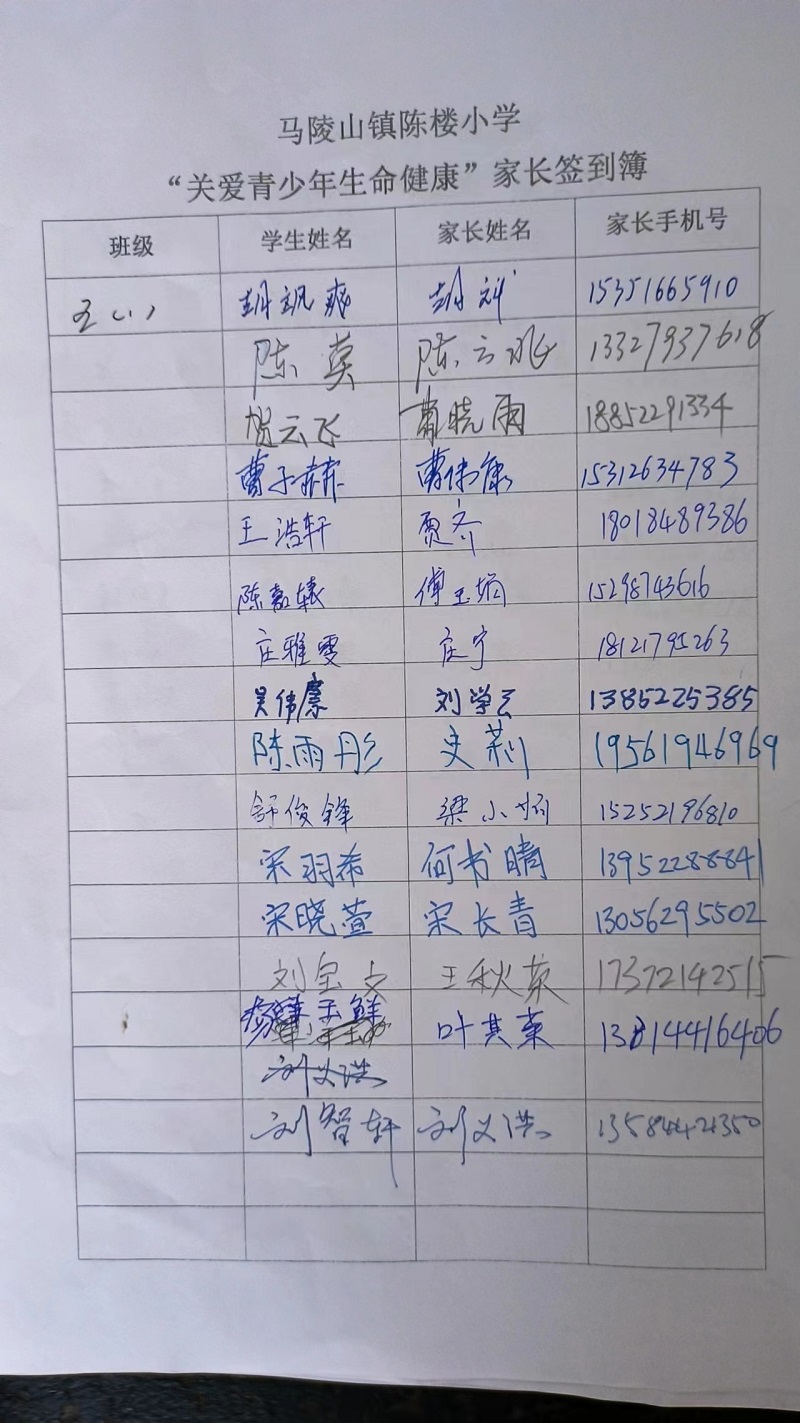 马陵山镇陈楼小学
“关爱青少年生命健康”家长签到簿
班级 学生姓名 家长姓名 家长手机号
五(1) 胡飒爽 胡 15351665910
陈莫 陈云兆 13327937618
贺云飞 曹晓雨 18852291334
曹子赫 曹伟康 15312634783
王浩轩 贾齐 18018489386
陈嘉辕 傅玉娟 15298743616
庄雅雯 庄宁 18121795263
吴伟豪 刘学云 13852225385
陈雨彤 史莉 19561946969
舒俊锋 梁小娟 15252196810
宋羽希 何书晴 13952288841
宋晓萱 宋长青 13056295502
刘宝文 王秋英 17372142515
叶其英 13814416406
刘义洪
刘智轩 刘义洪 13584421350